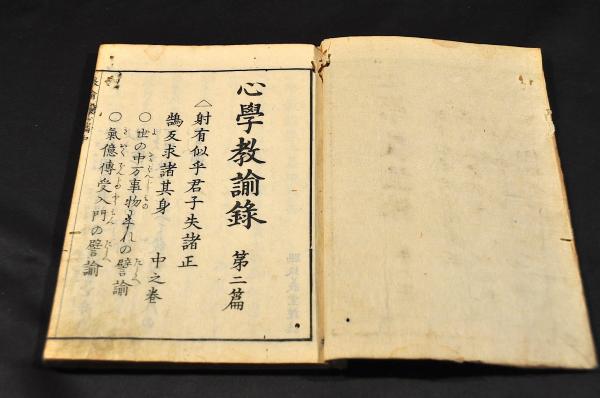 心學教諭錄 第二篇
△射有似乎君子失諸正
鵠反求諸其身 中之巻
○世の中万事物れの譬諭
○氣億傳受入門の譬諭